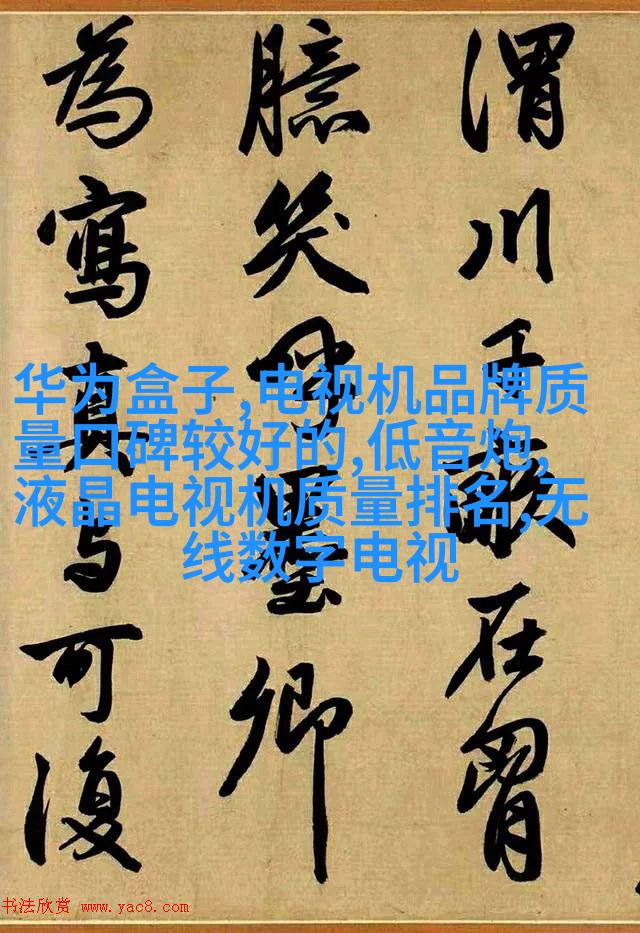 渭川千畝在胷
臆笑呼墨卿
為寫真与可復
华为盒子,电视机品牌质
量口碑较好的,低音炮,
液晶电视机质量排名,无
线数字电视
书法欣赏 www.yac8.com